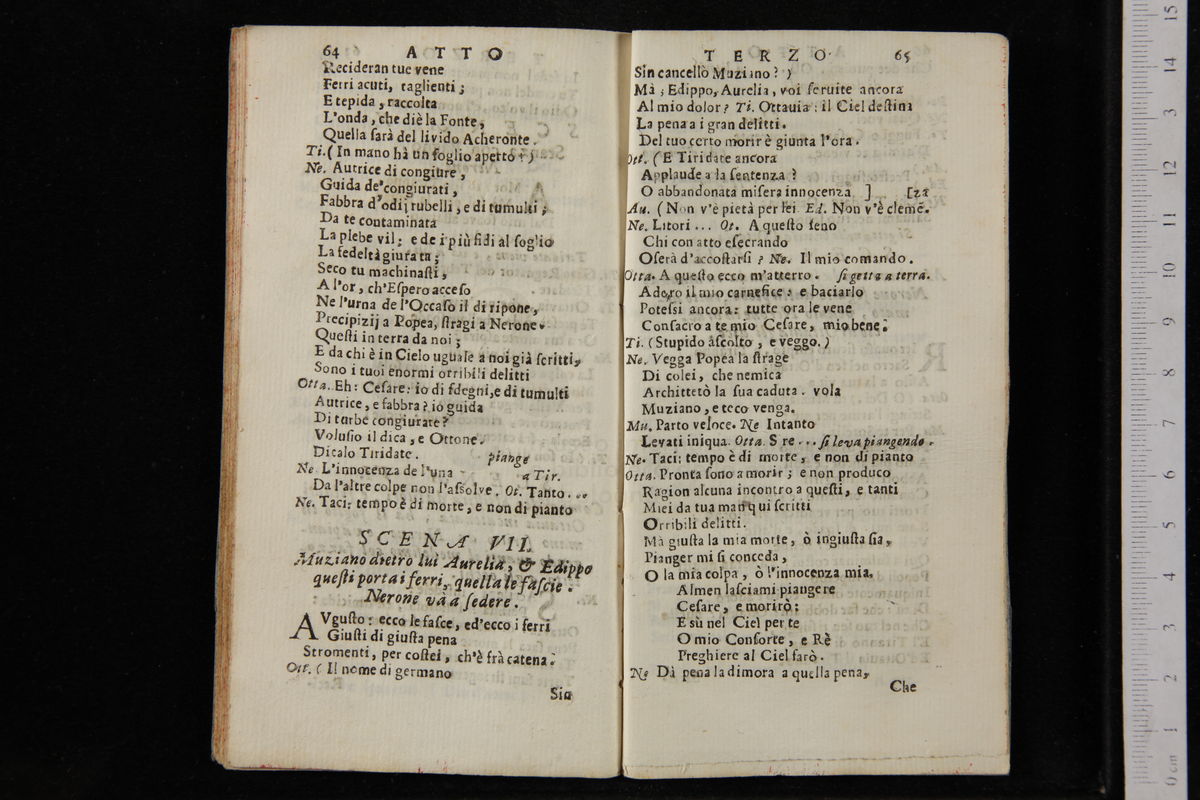 64 ATTO
Recideran tue vene
Ferri acuti, taglienti;
E tepida, raccolta
L'onda, che diè la Fonte,
Quella sarà del livido Acheronte.
Ti. ( In mano hà un foglio aperto? )
Ne. Autrice di congiure,
Guida de' congiurati,
Fabbra d'odij rubelli, e di tumulti;
Da te contaminata
La plebe vil: e de i più fidi al soglio
La fedeltà giurata;
Seco tu machinasti,
A l'or, ch'Espero acceso
Ne l'urna de l'Occaso il dì ripone,
Precipizij a Popea, stragi a Nerone.
Questi in terra da noi;
E da chi è in Cielo uguale a noi già scritti,
Sono i tuoi enormi orribili delitti
Otta. Eh: Cesare: io di sdegni, e di tumulti
Autrice, e fabbra? io guida
Di turbe congiurate?
Volusio il dica, e Ottone.
Dicalo Tiridate. piange
Ne L'innocenza de l'una a Tir.
Da l'altre colpe non l'assolve. Ot. Tanto...
Ne. Taci: tempo è di morte, e non di pianto
SCENA VII.
Muziano dietro lui Aurelia, & Edippo
questi porta i ferri, quella le fascie.
Nerone và a sedere.
AVgusto: ecco le fasce, ed'ecco i ferri
Giusti di giusta pena
Stromenti, per costei, ch'è frà catena.
Ott. ( Il nome di germano
Sin
TERZO 65
Sin cancellò Muziano? )
Mà; Edippo, Aurelia, voi servite ancora
Al mio dolor? Ti. Ottavia: il Ciel destina
La pena a i gran delitti.
Del tuo certo morir è giunta l'ora.
Ott. ( E Tiridate ancora
Applaude a la sentenza?
O abbandonata misera innocenza ] [za
Au. ( Non v'è pietà per lei Ed. Non v'è clemē.
Ne. Litori... Ot. A questo seno
Chi con atto esecrando
Oserà d'accostarsi? Ne. Il mio comando.
Otta. A questo ecco m'atterro. si getta a terra.
Adoro il mio carnefice: e baciarlo
Potessi ancora: tutte ora le vene
Consacro a te mio Cesare, mio bene.
Ti. ( Stupido ascolto, e veggo. )
Ne. Vegga Popea la strage
Di colei, che nemica
Architettò la sua caduta. vola
Muziano, e teco venga.
Mu. Parto veloce. Ne Intanto
Levati iniqua. Otta. S re... si leva piangendo.
Ne. Taci: tempo è di morte, e non di pianto
Otta. Pronta sono a morir; e non produco
Ragion alcuna incontro a questi, e tanti
Miei da tua man qui scritti
Orribili delitti.
Mà giusta la mia morte, ò ingiusta sia,
Pianger mi si conceda,
O la mia colpa, ò l'innocenza mia.
Almen lasciami piangere
Cesare, e morirò:
E sù nel Ciel per te
O mio Consorte, e Rè
Preghiere al Ciel farò.
Ne Dà pena la dimora a quella pena,
Che